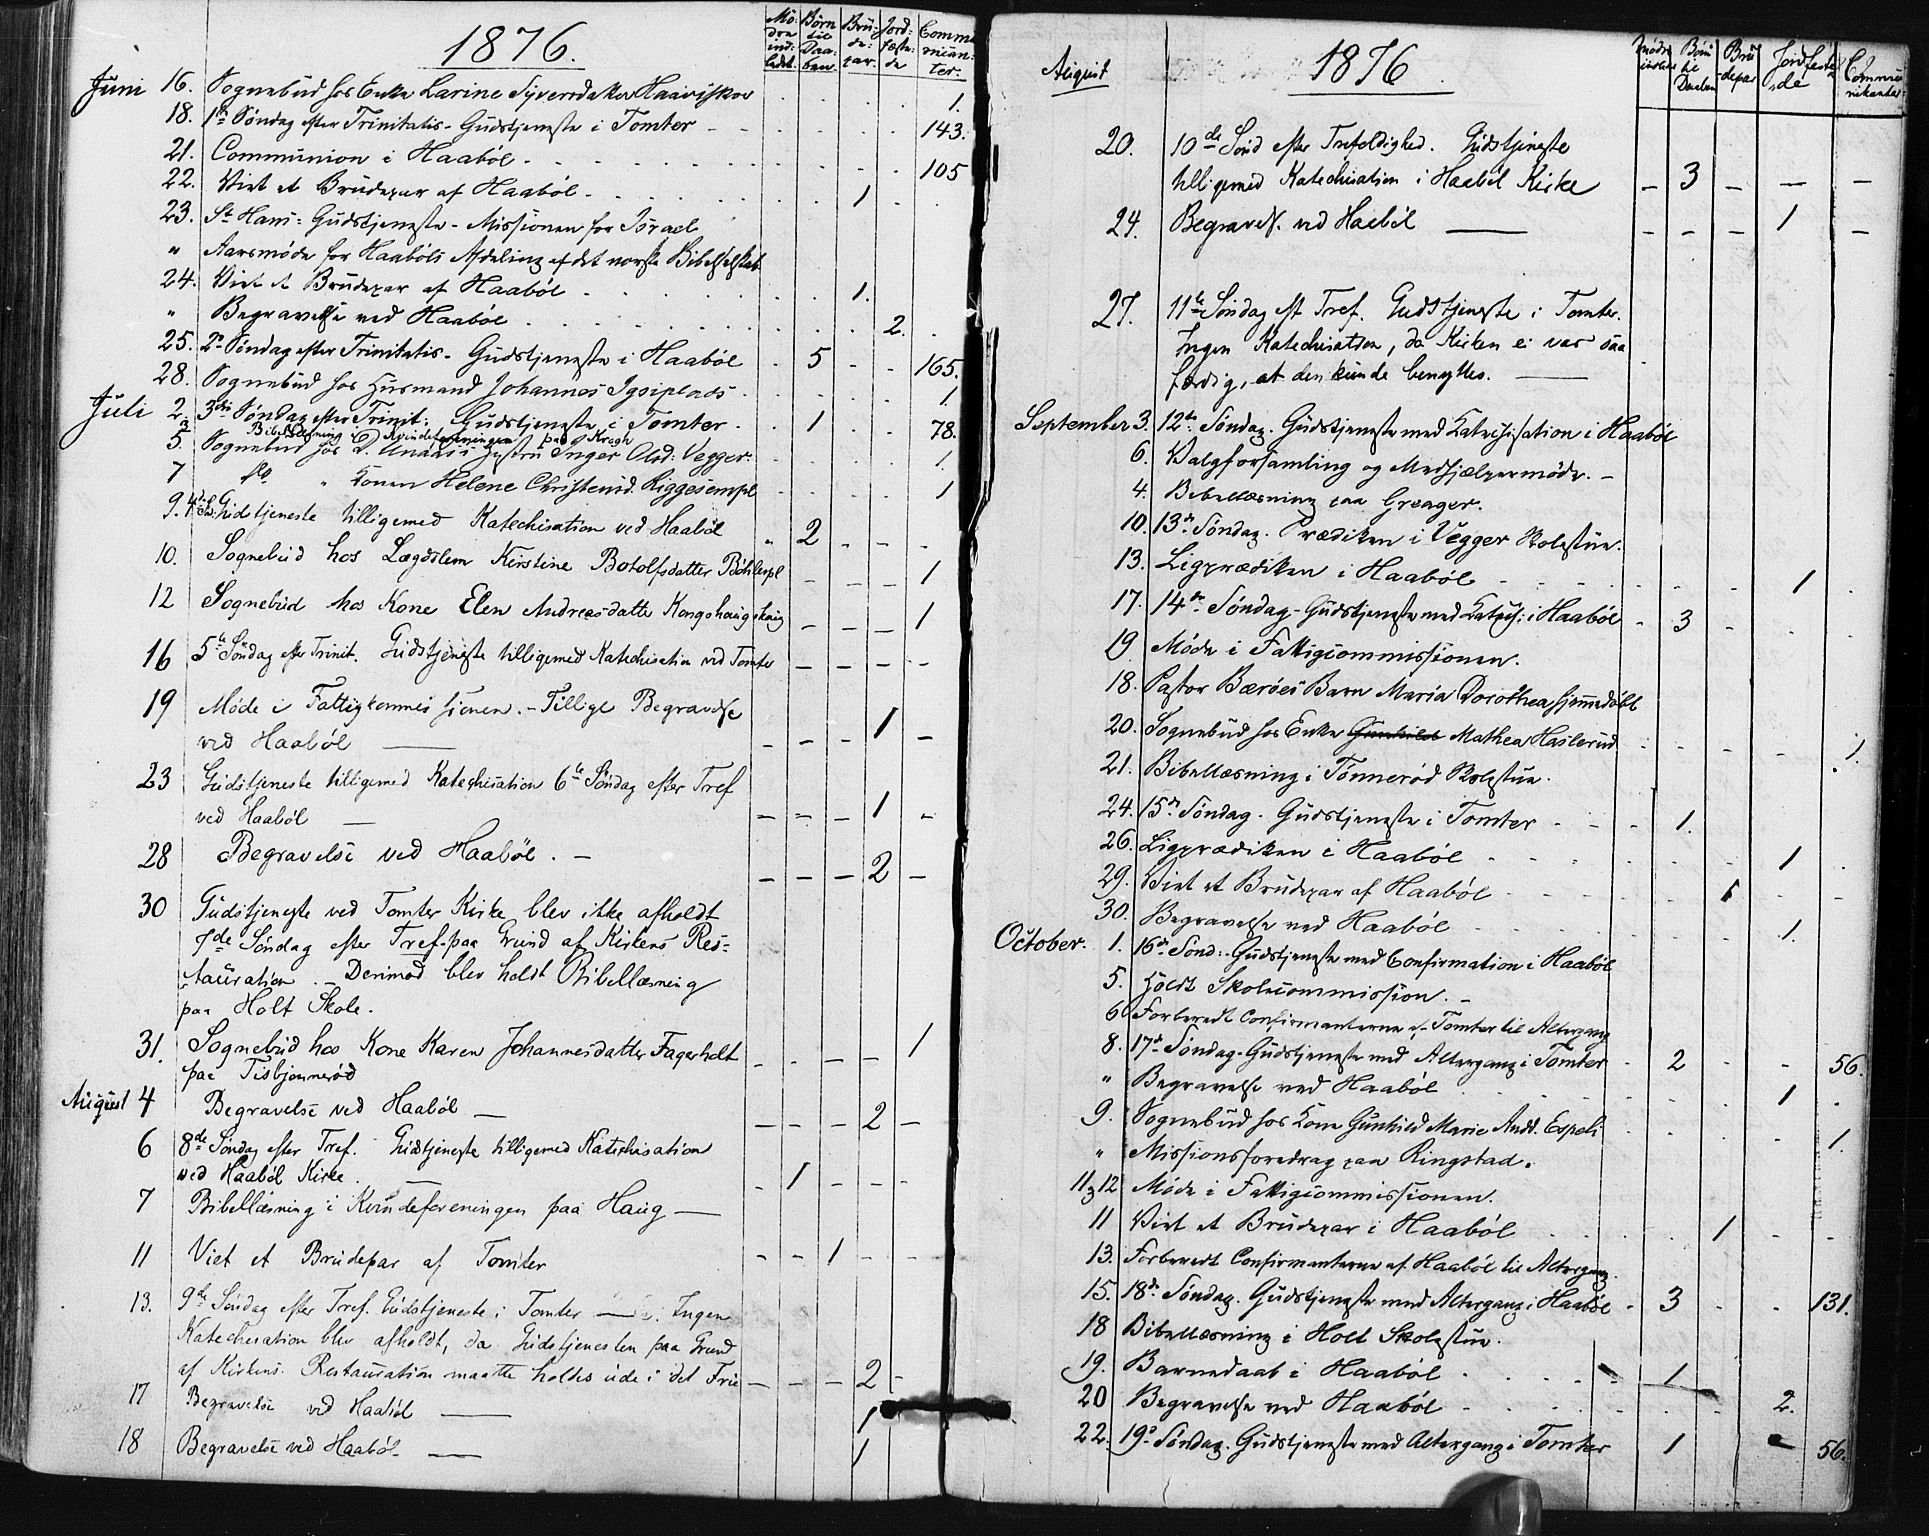 1876.
Mødre indledt. Børn til Daaben. Brudepar. Jordfæstede Communicanter.
Juni 16. Sognebud hos Enke Larine Syversdatter Haavisskov 1.
18. 1ste Søndag efter Trinitatis - Gudstjeneste i Tomter 143.
21. Communion i Haabøl 105
22. Viet et Brudepar af Haabøl 1
23. St Hans: Gudstjeneste - Missionen for Israel
" Aarsmøde for Haabøls Afdeling af det norske Bibelselskab
24. Viet et Brudepar af Haabøl 1.
" Begravelse ved Haabøl 2
25. 2den Søndag efter Trinitatis - Gudstjeneste i Haabøl 5 - - 165.
28. Sognebud hos Husmand Johannes Igsiplads 1
Juli 2. 3die Søndag efter Trinit: Gudstjeneste i Tomter 1 78.
3 Bibellæsning i Kvindeforeningen paa Kragh
5. Sognebud hos Hustru Inger Olsd: Vegger 1.
7 do " Konen Helene Christensd. Riggesempl 1
9. 4de S. Gudstjeneste tilligemed Katechisation ved Haabøl " 2 - - -
10. Sognebud hos Lægdslem Kirstine Botolfsdatter Bøhlerpl - - - 1
12 Sognebud hos Kone Elen Andreasdatter Kongshaugskaug - - - 1
16 5te Søndag efter Trinit. Gudstjeneste tilligemed Katechisation ved Tomter - - - - -
19 Møde i Fattigkommissionen. - Tillige Begravelse
ved Haabøl - - - 1 -
23 Gudstjeneste tilligemed Katechisation 6te Søndag efter Tref
ved Haabøl - - - 1 -
28 Begravelse ved Haabøl. - - - - 2 -
30 Gudstjeneste ved Tomter Kirke blev ikke afholdt
7de Søndag efter Tref. paa Grund af Kirkens Res-
tauration. - Derimod blev holdt Bibellæsning
paa Holt Skole.
31. Sognebud hos Kone Karen Johannesdatter Fagerholt
paa Tisbjønnerød - - - - 1
August 4 Begravelse ved Haabøl - - - - 2 -
6 8de Søndag efter Tref. Gudstjeneste tilligemed Katechisation
ved Haabøl Kirke. - 1 - - -
7 Bibellæsning i Kvindeforeningen paa Haug -
11 Viet et Brudepar af Tomter - - 1 - -
13. 9de Søndag efter Tref. Gudstjeneste i Tomter - Ingen
Katechisation blev afholdt, da Gudstjenesten paa Grund
af Kirkens Restauration maatte holdes ude i det Frie - - - 2 -
17 Begravelse ved Haabøl - 1
18 Begravelse ved Haabøl - 1
1876
August
Mødre indledte Børn til Daaben Brudepar Jordfæstede Communikanter
20. 10de Sønd efter Trefoldighed. Gudstjeneste
tilligemed Katechisation i Haabøl Kirke - 3 - - -
24. Begravels. ved Haabøl - - - - 1 -
27. 11te Søndag eft Tref. Gudstjeneste i Tomter.
Ingen Katechisation, da Kirken ei var saa
færdig, at den kunde benyttes. -
September 3. 12te Søndag. Gudstjeneste med Katechisation i Haabøl
6. Valgforsamling og Medhjælpermøde. -
4. Bibellæsning paa Greager.
10. 13de Søndag. Prædiken i Vegger Skolestue.
13. Ligprædiken i Haabøl 1
17. 14de Søndag - Gudstjeneste med Katech: i Haabøl - 3
19 Møde i Fattigcommissionen.
18. Pastor Bærøes Barn Maria Dorothea hjemmedøbt
20. Sognebud hos Enke Gunhild Mathea Haslerud 1.
21. Bibellæsning i Tønnerød Skolestue.
24. 15de Søndag. Gudstjeneste i Tomter 1.
26. Ligprædiken i Haabøl 1
29. Viet et Brudepar af Haabøl 1
30. Begravelse ved Haabøl 1.
October. 1. 16de Sønd: - Gudstjeneste med Confirmation i Haabøl
5. Holdt Skolecommission. -
6 Forberedt Confirmanterne af Tomter til Altergang
8. 17de Søndag - Gudstjeneste med Altergang i Tomter 2 56.
" Begravelse ved Haabøl 1
9. Sognebud hos Kone Gunhild Marie Andd. Espeli 1.
" Missionsforedrag paa Ringstad.
11 & 12 Møde i Fattigcommissionen.
11 Viet et Brudepar i Haabøl 1
13. Forberedt Confirmanterne af Haabøl til Altergang.
15. 18de Søndag. Gudstjeneste med Altergang i Haabøl - 3 131.
18 Bibellæsning i Holt Skolestue.
19. Barnedaab i Haabøl 1
20 Begravelse ved Haabøl 2.
22. 19de Søndag. Gudstjeneste med Altergang i Tomter 1 56.